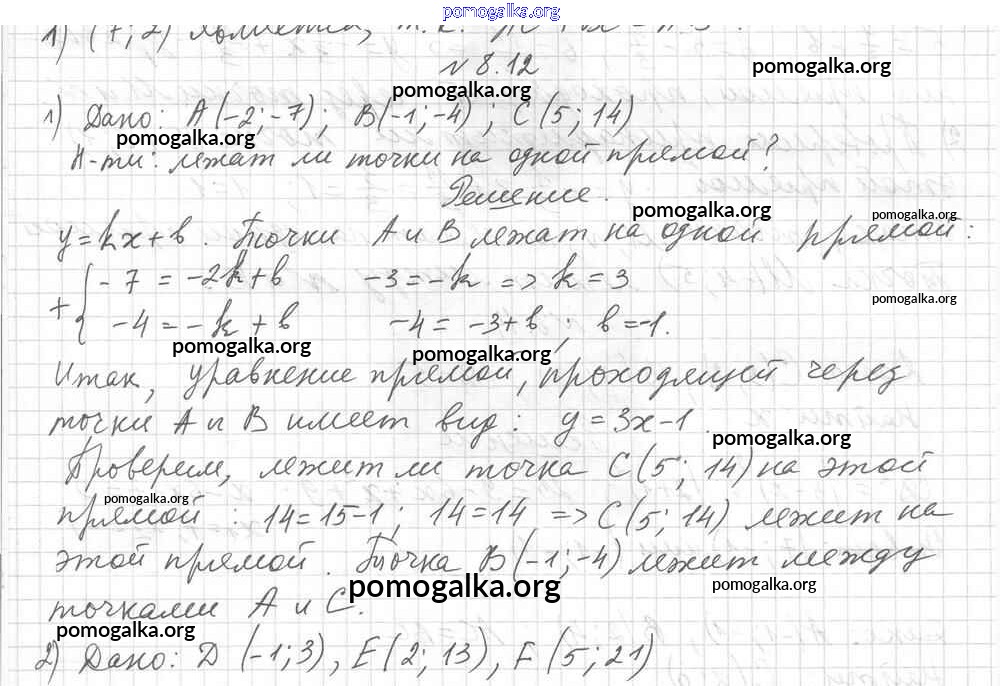 pomogalka.org
1) (7; 2) является, т.к.
№ 8.12
pomogalka.org
pomogalka.org
1) Дано: A(-2; -7); B(-1; -4); C(5; 14)
pomogalka.org
Н-ти: лежат ли точки на одной прямой?
Решение.
pomogalka.org
pomogalka.org
y = kx + b. Точки A и B лежат на одной прямой:
-7 = -2k + b -3 = -k => k = 3
pomogalka.org
+{ -4 = -k + b -4 = -3 + b; b = -1.
pomogalka.org
pomogalka.org
Итак, уравнение прямой, проходящей через
точки A и B имеет вид: y = 3x - 1.
pomogalka.org
Проверим, лежит ли точка C(5; 14) на этой
pomogalka.org
прямой: 14 = 15 - 1; 14 = 14 => C(5; 14) лежит на
этой прямой. Точка B(-1; -4) лежит между
pomogalka.org
pomogalka.org
точками A и C.
pomogalka.org
2) Дано: D(-1; 3), E(2; 13), F(5; 21)